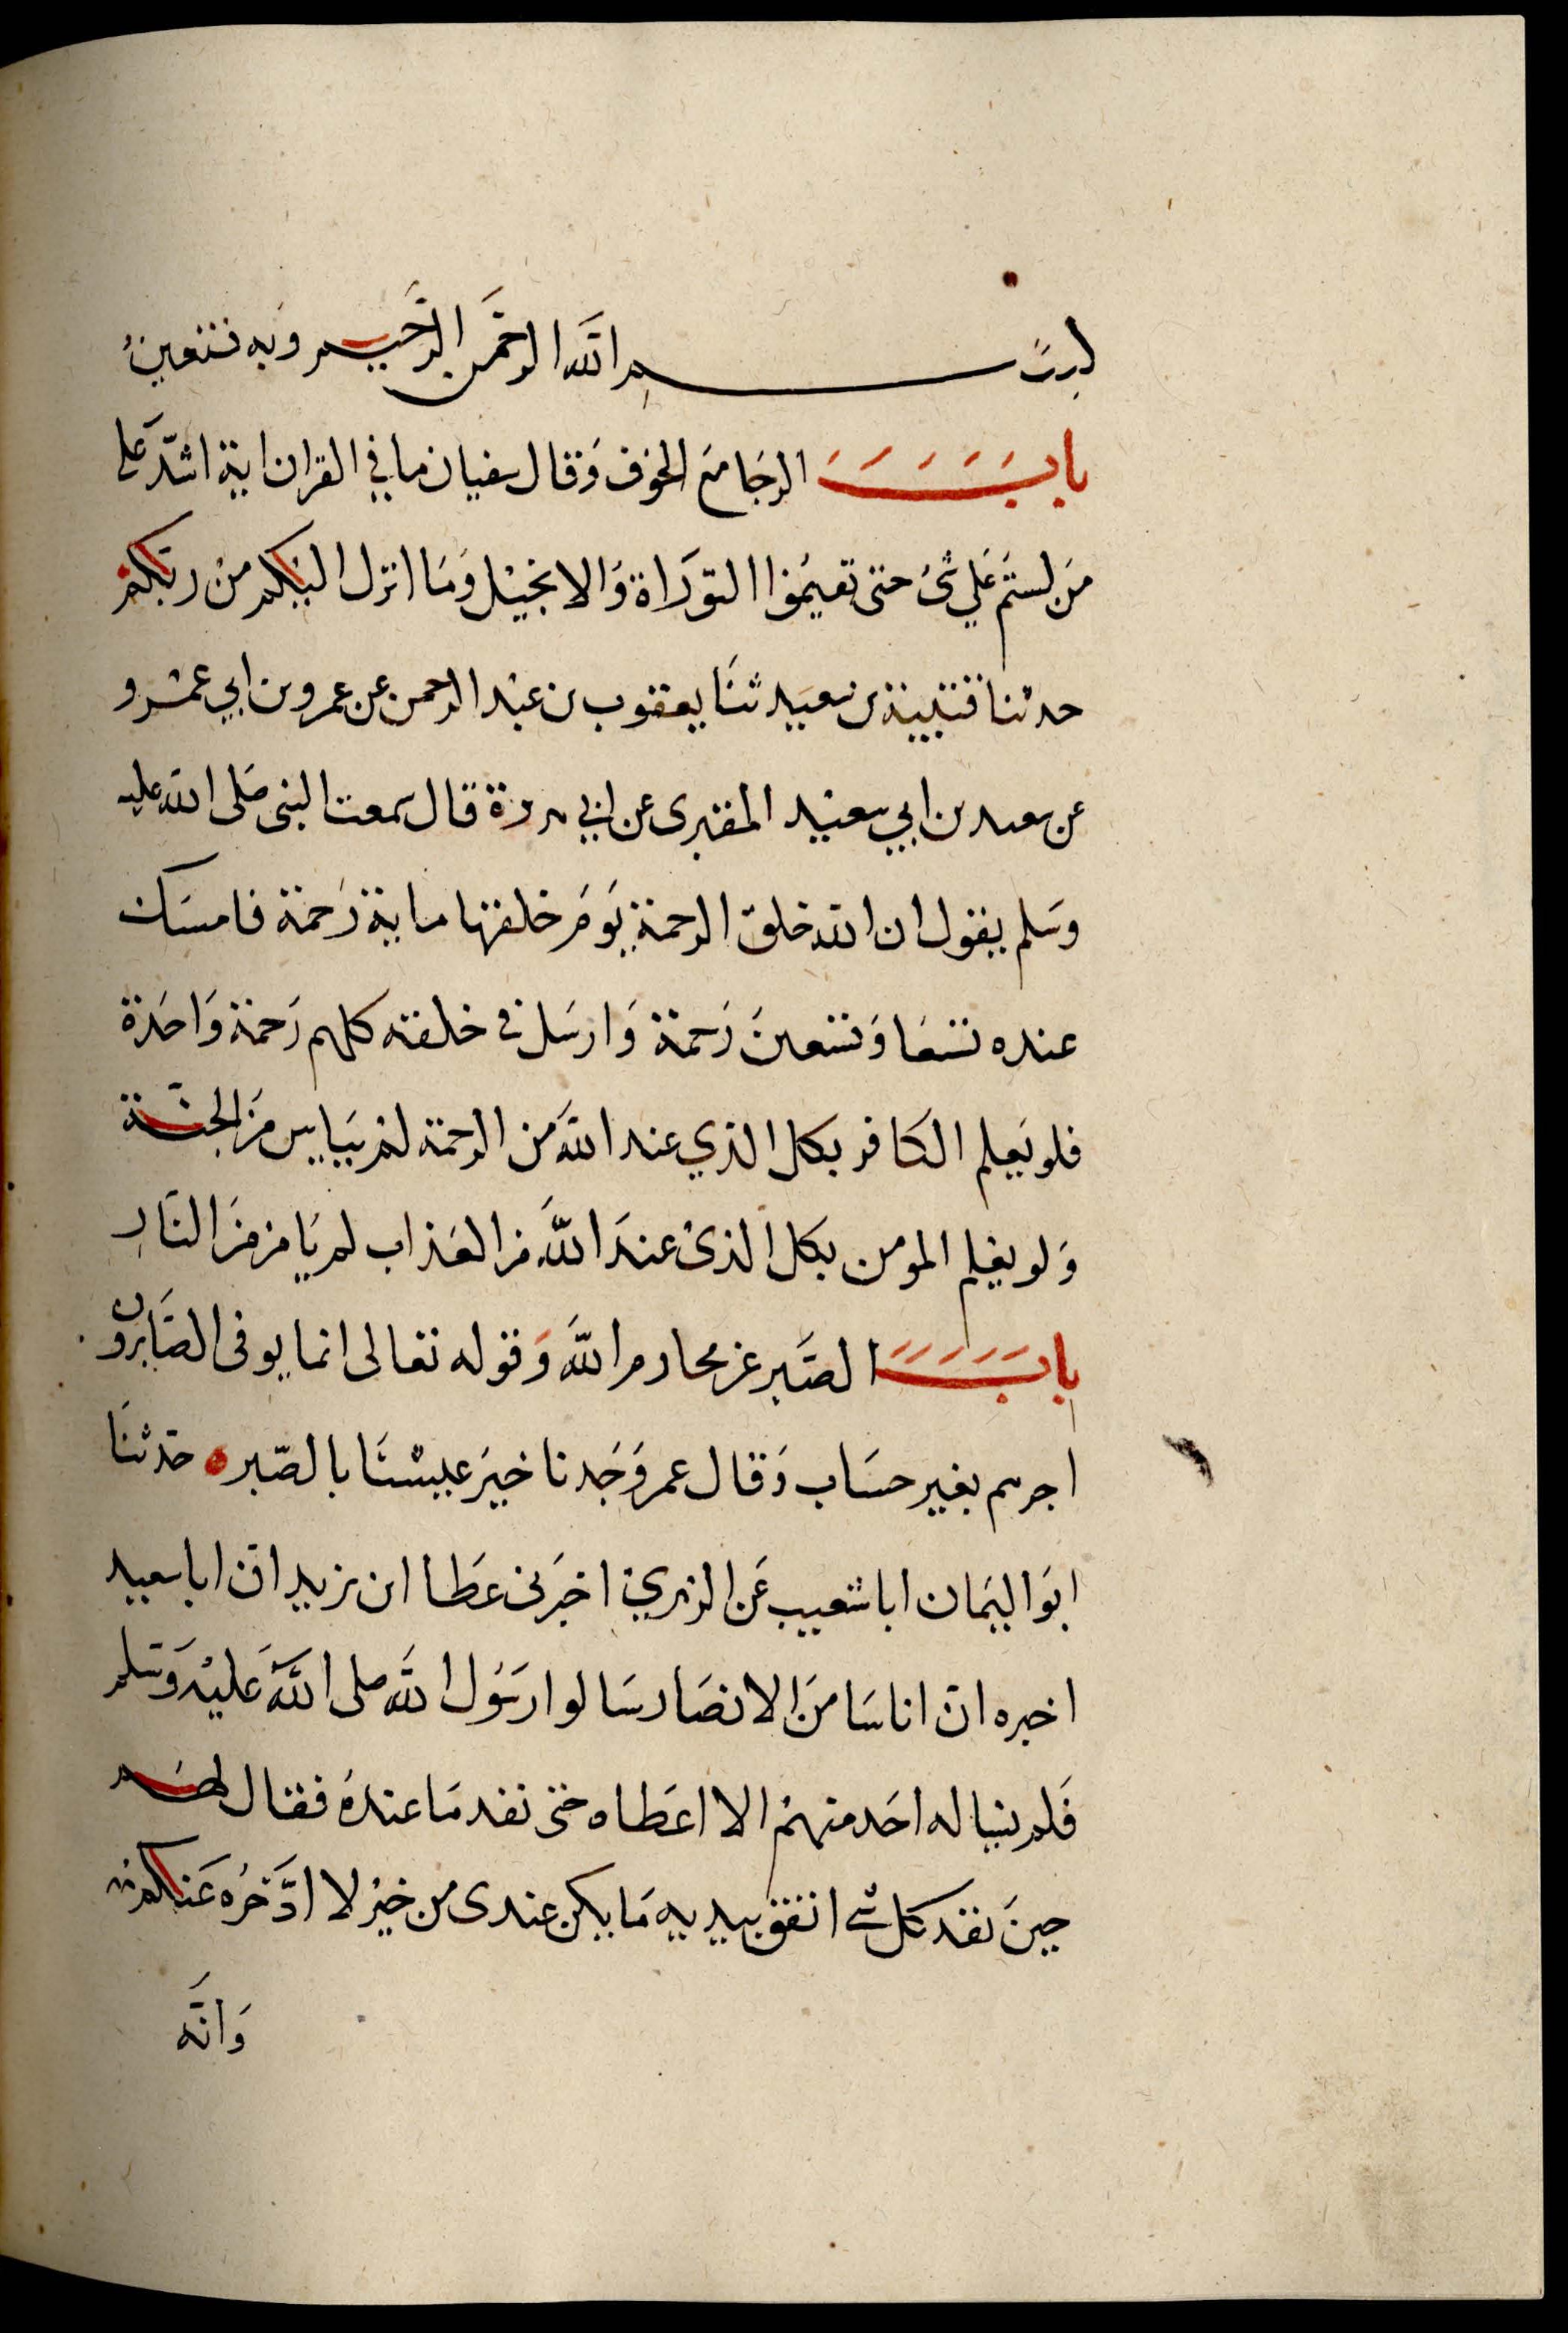 بسم الله الرحمن الرحيم وبه نستعين
باب الرجا مع الخوف وقال سفيان ما في القران اية اشد علي
من لستم علي شئ حتى تقيموا التوراة والانجيل وما انزل اليكم من ربكم
حدثنا قتيبة بن سعيد ثنا يعقوب بن عبد الرحمن عن عمرو بن ابي عمرو
عن سعيد بن ابي سعيد المقبرى عن ابي هريرة قال سمعت النبى صلى الله عليه
وسلم يقول ان الله خلق الرحمة يوم خلقها ماية رحمة فامسك
عنده تسعا وتسعين رحمة وارسل في خلقه كلهم رحمة واحدة
فلو يعلم الكافر بكل الذي عند الله من الرحمة لم ييايس من الجنة
ولو يعلم المومن بكل الذى عند الله من العذاب لم يامن من النار
باب الصبر عن محارم الله وقوله تعالى انما يوفى الصابرون
اجرهم بغير حساب وقال عمر وجدنا خير عيشنا بالصبر حدثنا
ابو اليمان ابا شعيب عن الزهري اخبرنى عطا ابن يزيد ان ابا سعيد
اخبره ان اناسا من الانصار سالوا رسول الله صلى الله عليه وسلم
فلم يساله احد منهم الا اعطاه حتى نفد ما عنده فقال لهم
حين نفد كل شي انفق بيديه ما يكن عندى من خير لا ادخره عنكم
وانه